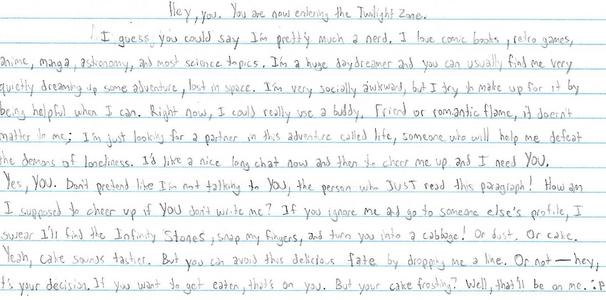 Hey, you. You are now entering the Twilight Zone.
I guess you could say I'm pretty much a nerd. I love comic books, retro games,
anime, manga, astronomy, and most science topics. I'm a huge daydreamer and you can usually find me very
quietly dreaming up some adventure, lost in space. I'm very socially awkward, but I try to make up for it by
being helpful when I can. Right now, I could really use a buddy. Friend or romantic flame, it doesn't
matter to me; I'm just looking for a partner in this adventure called life, someone who will help me defeat
the demons of loneliness. I'd like a nice long chat now and then to cheer me up and I need YOU.
Yes, YOU. Don't pretend like I'm not talking to YOU, the person who JUST read this paragraph! How am
I supposed to cheer up if YOU don't write me? If you ignore me and go to someone else's profile, I
swear I'll find the Infinity Stones, snap my fingers, and turn you into a cabbage! Or dust. Or cake.
Yeah, cake sounds tastier. But you can avoid this delicious fate by dropping me a line. Or not — hey,
it's your decision. If you want to get eaten, that's on you. But your cake frosting? Well, that'll be on me. :P